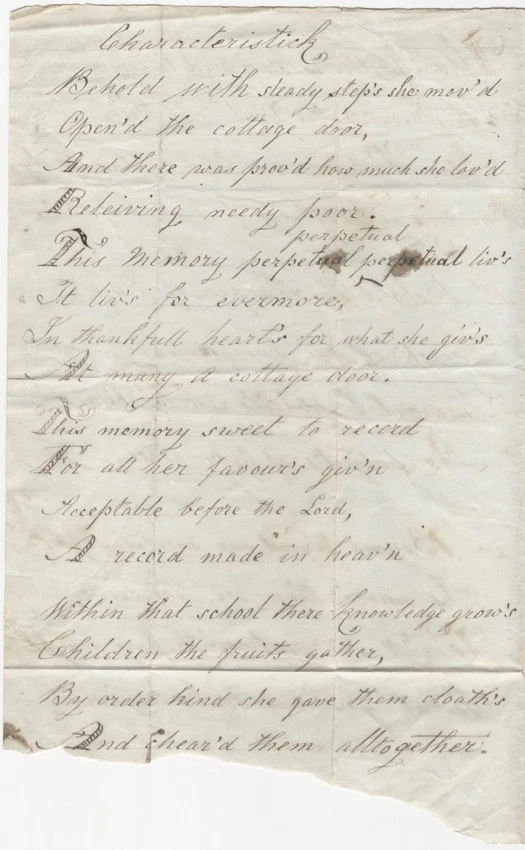 Characteristick
Behold with steady step's she mov'd
Open'd the cottage dror,
And there was prov'd how much she lov'd
Releiving needy poor.
perpetual
This memory perpetual perpetual liv's
It liv's for evermore,
In thankfull heart's for what she giv's
At many a cottage door.
This memory sweet to record
For all her favour's giv'n
Acceptable before the Lord,
A record made in heav'n
Within that school there knowledge grow's
Children the fruits gather,
By order kind she gave them cloath's
And chear'd them alltogether.